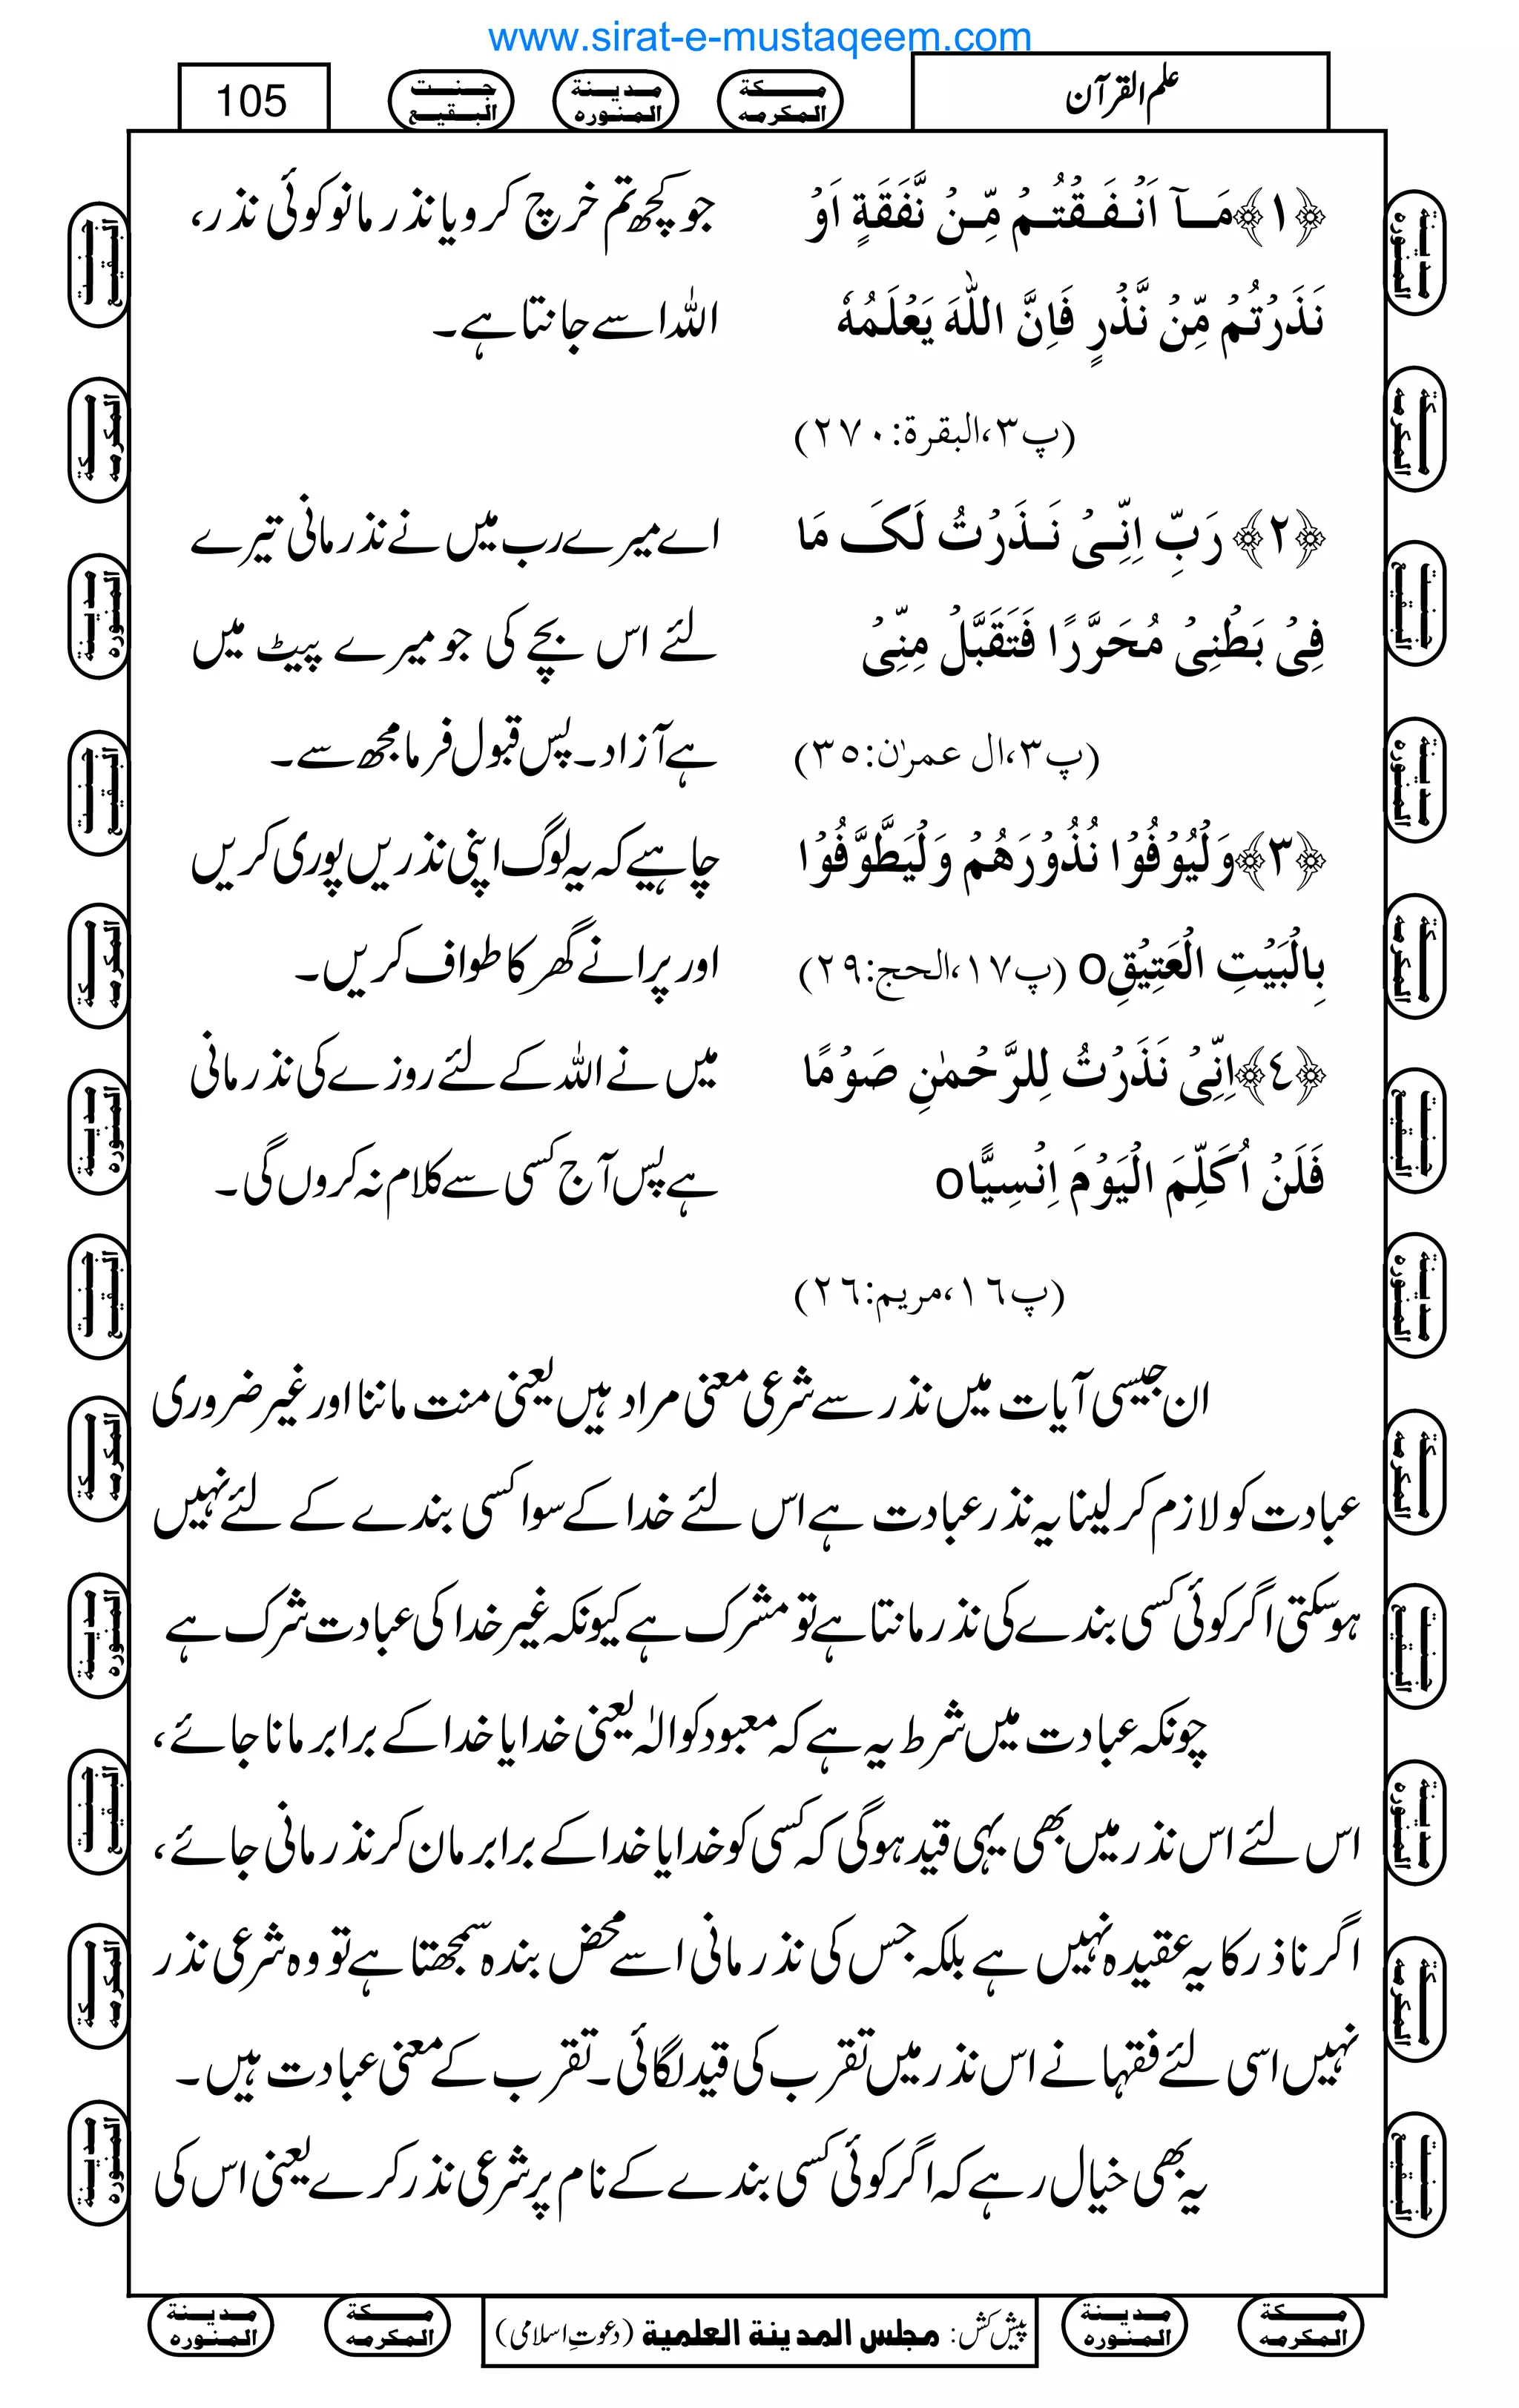 www.sirat-e-mustaqeem.com
علم القرآن
مكة المكرمه
مدينة المنوره
جنت البقيع
105
﴿١﴾مَآ اَنْفَقْتُمْ مِّنْ نَّفَقَةٍ اَوْ
نَذَرْتُمْ مِّنْ نَّذْرٍ فَاِنَّ اللّٰهَ يَعْلَمُهٗ
(پ٣،البقرة:٢٧٠)
جو کچھ تم خرچ کرو یا نذر مانو کوئی نذر،
اللہ اسے جانتا ہے۔
﴿٢﴾ رَبِّ اِنِّیْ نَذَرْتُ لَکَ مَا
فِیْ بَطْنِیْ مُحَرَّرًا فَتَقَبَّلْ مِنِّیْ
(پ٣،ال عمرٰن:٣٥)
اے میرے رب میں نے نذر مانی تیرے
لئے اس بچے کی جو میرے پیٹ میں
ہے آزاد۔ پس قبول فرما مجھ سے۔
﴿٣﴾وَلْيُوْفُوْا نُذُوْرَهُمْ وَلْيَطَّوَّفُوْا
بِالْبَيْتِ الْعَتِيْقِo (پ١٧،الحج:٢٩)
چاہیے کہ یہ لوگ اپنی نذریں پوری کریں
اور پرانے گھر کا طواف کریں۔
﴿٤﴾اِنِّیْ نَذَرْتُ لِلرَّحْمٰنِ صَوْمًا
فَلَنْ اُكَلِّمَ الْيَوْمَ اِنْسِيًّاo
(پ١٦،مريم:٢٦)
میں نے اللہ کے لئے روزے کی نذر مانی
ہے پس آج کسی سے کلام نہ کروں گی۔
ان جیسی آیات میں نذر سے شرعی معنی مراد ہیں یعنی منت ماننا اور غیر ضروری
عبادت کو لازم کر لینا یہ نذر عبادت ہے اس لئے خدا کے سوا کسی بندے کے لئے نہیں
ہوسکتی اگر کوئی کسی بندے کی نذر مانتا ہے تو مشرک ہے کیونکہ غیر خدا کی عبادت شرک ہے
چونکہ عبادت میں شرط یہ ہے کہ معبود کو الٰہ یعنی خدا یا خدا کے برابر مانا جائے،
اس لئے اس نذر میں بھی یہی قید ہوگی کہ کسی کو خدا یا خدا کے برابر مان کر نذر مانی جائے،
اگر ناذر کا یہ عقیدہ نہیں ہے بلکہ جس کی نذر مانی اسے محض بندہ سمجھتا ہے تو وہ شرعی نذر
نہیں اسی لئے فقہا نے اس نذر میں تقرب کی قید لگائی۔ تقرب کے معنی عبادت ہیں۔
یہ بھی خیال رہے کہ اگر کوئی کسی بندے کے نام پر شرعی نذر کرے یعنی اس کی
پیش کش: مجلس المدينة العلمية (دعوتِ اسلامی)